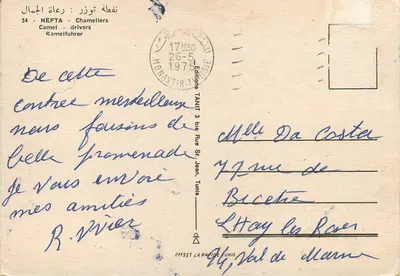 نفطة توزر : رعاة الجمال
54 - NEFTA - Chameliers
Camel - drivers
Kamelfuhrer
17H30
26-5
1975
MONASTIR-TUNISIE
De cette
contrée merveilleuse
nous faisons de
belle promenade
Je vous envoie
mes amitiés
R. Vvier
Editions TANIT 3 bis Rue St Jean, Tunis
OFFSET LA
TUNIS
Mlle Da Costa
77 rue de
Bicetre
L'Hay les Roses
94, Val de Marne